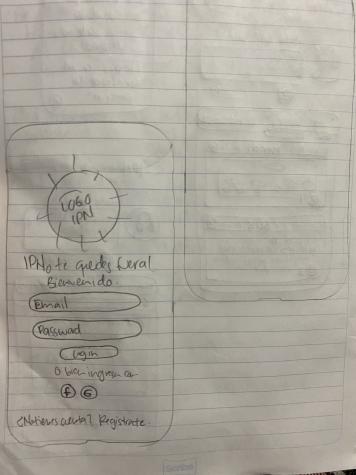 LOGO
IPN
IPNo te quedes fueral
Bienvenido.
Email
Password
login
O bien ingresa con
f G
¿No tienes cuenta? Registrate.
Scribe